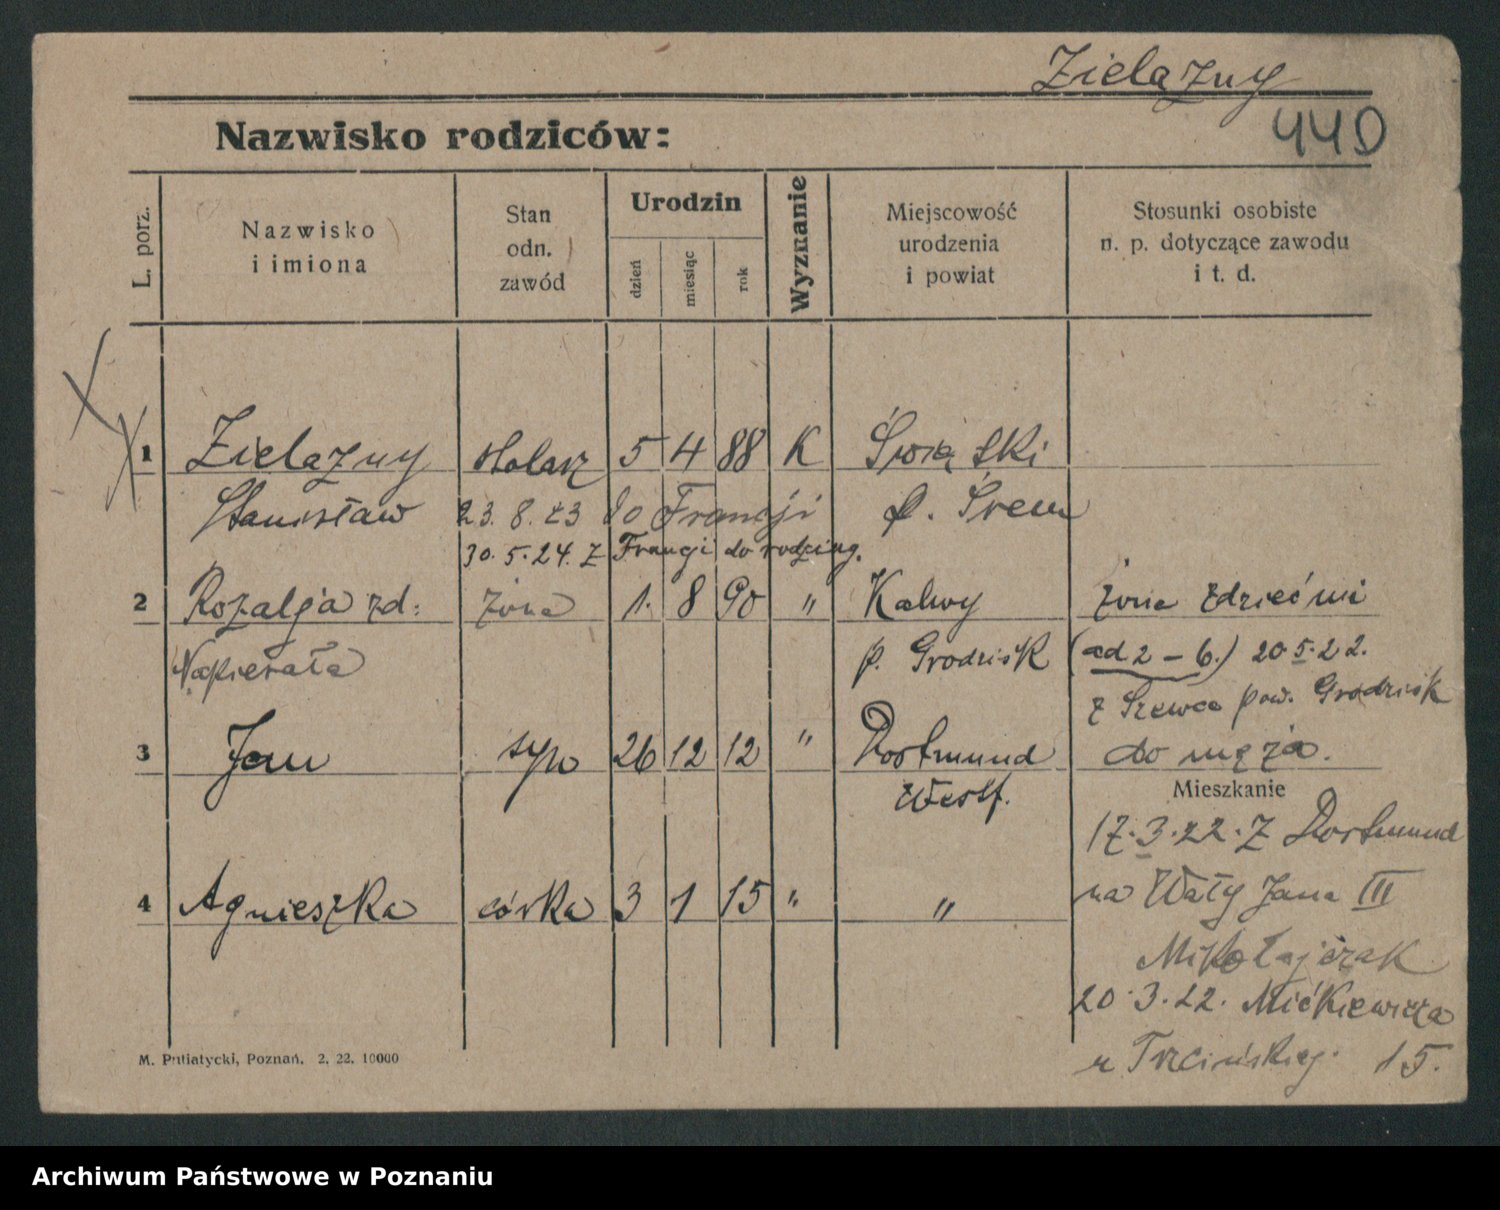 Zielązny
440
Nazwisko rodziców:
L. porz.
Nazwisko
i imiona
Stan
odn.
zawód
Urodzin
dzień
miesiąc
rok
Wyznanie
Miejscowość
urodzenia
i powiat
Stosunki osobiste
n. p. dotyczące zawodu
i t. d.
1 Zielązny stolarz 5 4 88 K
Stanisław 23. 8. 23 do Francji p. Śrem
30. 5. 24. z Francji do rodziny.
2 Rozalja zd: żona 1. 8 90 " Kąkolewy żona z dziećmi
Napierała p. Grodzisk (ad 2 – 6.) 20.5.22.
z Szewce pow. Grodzisk
3 Jan syn 26 12 12 " Dortmund do męża.
Westf.
Mieszkanie
17.3.22. Z Dortmund
4 Agnieszka córka 3 1 15 " " na Wały Jana III
Mikołajczak
20.3.22. Mickiewicza
u Trzcińskiej 15.
M. Putiatycki, Poznań. 2. 22. 10000
Archiwum Państwowe w Poznaniu